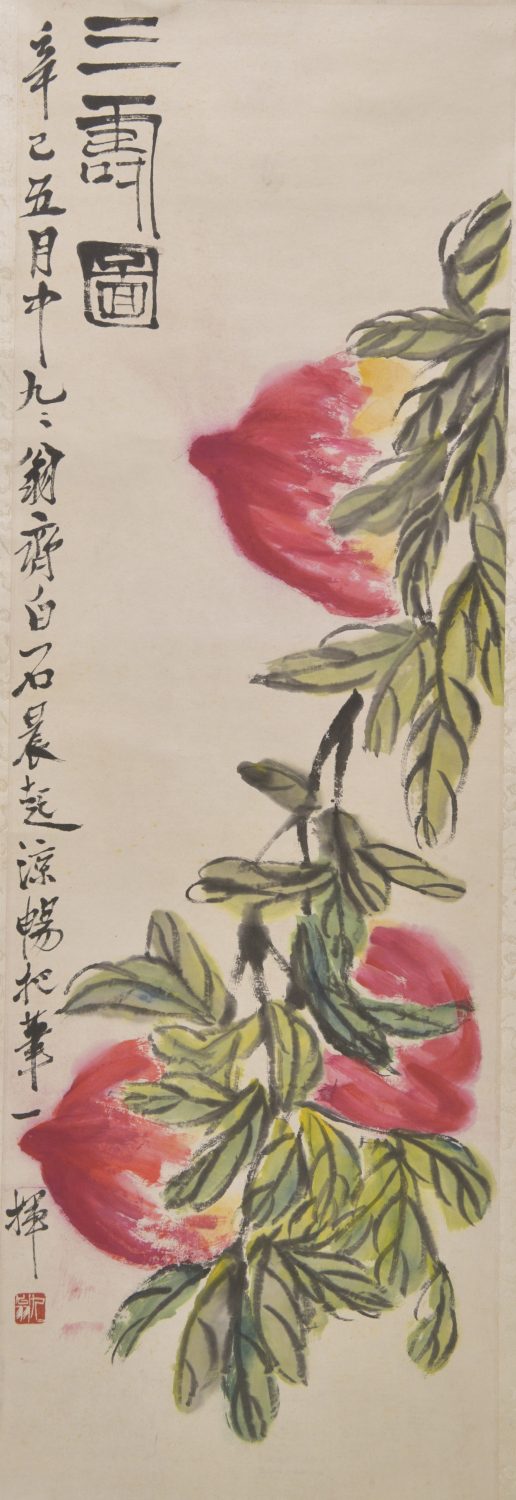 三壽圖
辛已五月中九〻翁齊白石晨起涼暢把筆一揮